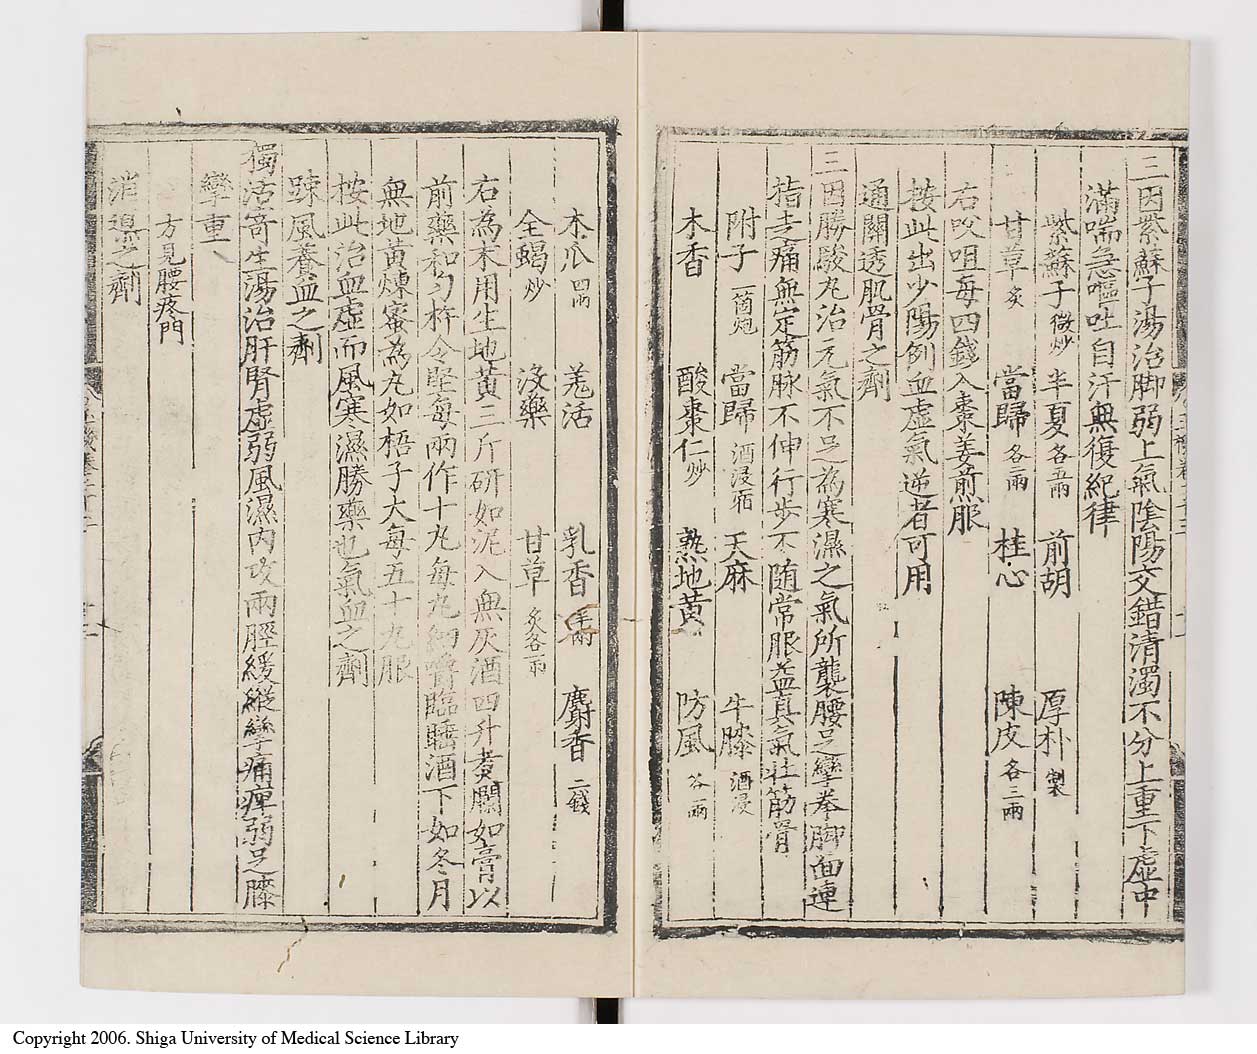 三因紫蘇子湯治脚弱上氣陰陽交錯清濁不分上重下虛中
滿喘急嘔吐自汗無復紀律
紫蘇子微炒 半夏各五兩 前胡 厚朴製
甘草炙 當歸各二兩 桂心 陳皮各三兩
右㕮咀每四錢入棗姜煎服
按此出少陽例血虛氣逆者可用
通關透肌骨之劑
三因勝駿丸治元氣不足為寒濕之氣所襲腰足攣拳脚面連
指走痛無定筋脉不伸行步不随常服益真氣壯筋骨
附子一箇炮 當歸酒浸一宿 天麻 牛膝酒浸
木香 酸棗仁炒 熟地黄 防風各二兩
木瓜四兩 羗活 乳香半兩 麝香二錢
全蝎炒 没藥 甘草炙各一兩
右為末用生地黃三斤研如泥入無灰酒四升煑爛如膏以
前藥和勻杵令堅每兩作十丸每丸細嚼臨睡酒下如冬月
無地黃煉蜜為丸如梧子大每五十丸服
按此治血虛而風寒濕勝藥也氣血之劑
踈風養血之劑
獨活寄生湯治肝腎虛弱風濕内攻兩脛緩縱攣痛痺弱足膝
攣重
方見腰疼門
消導之劑
Copyright 2006. Shiga University of Medical Science Library